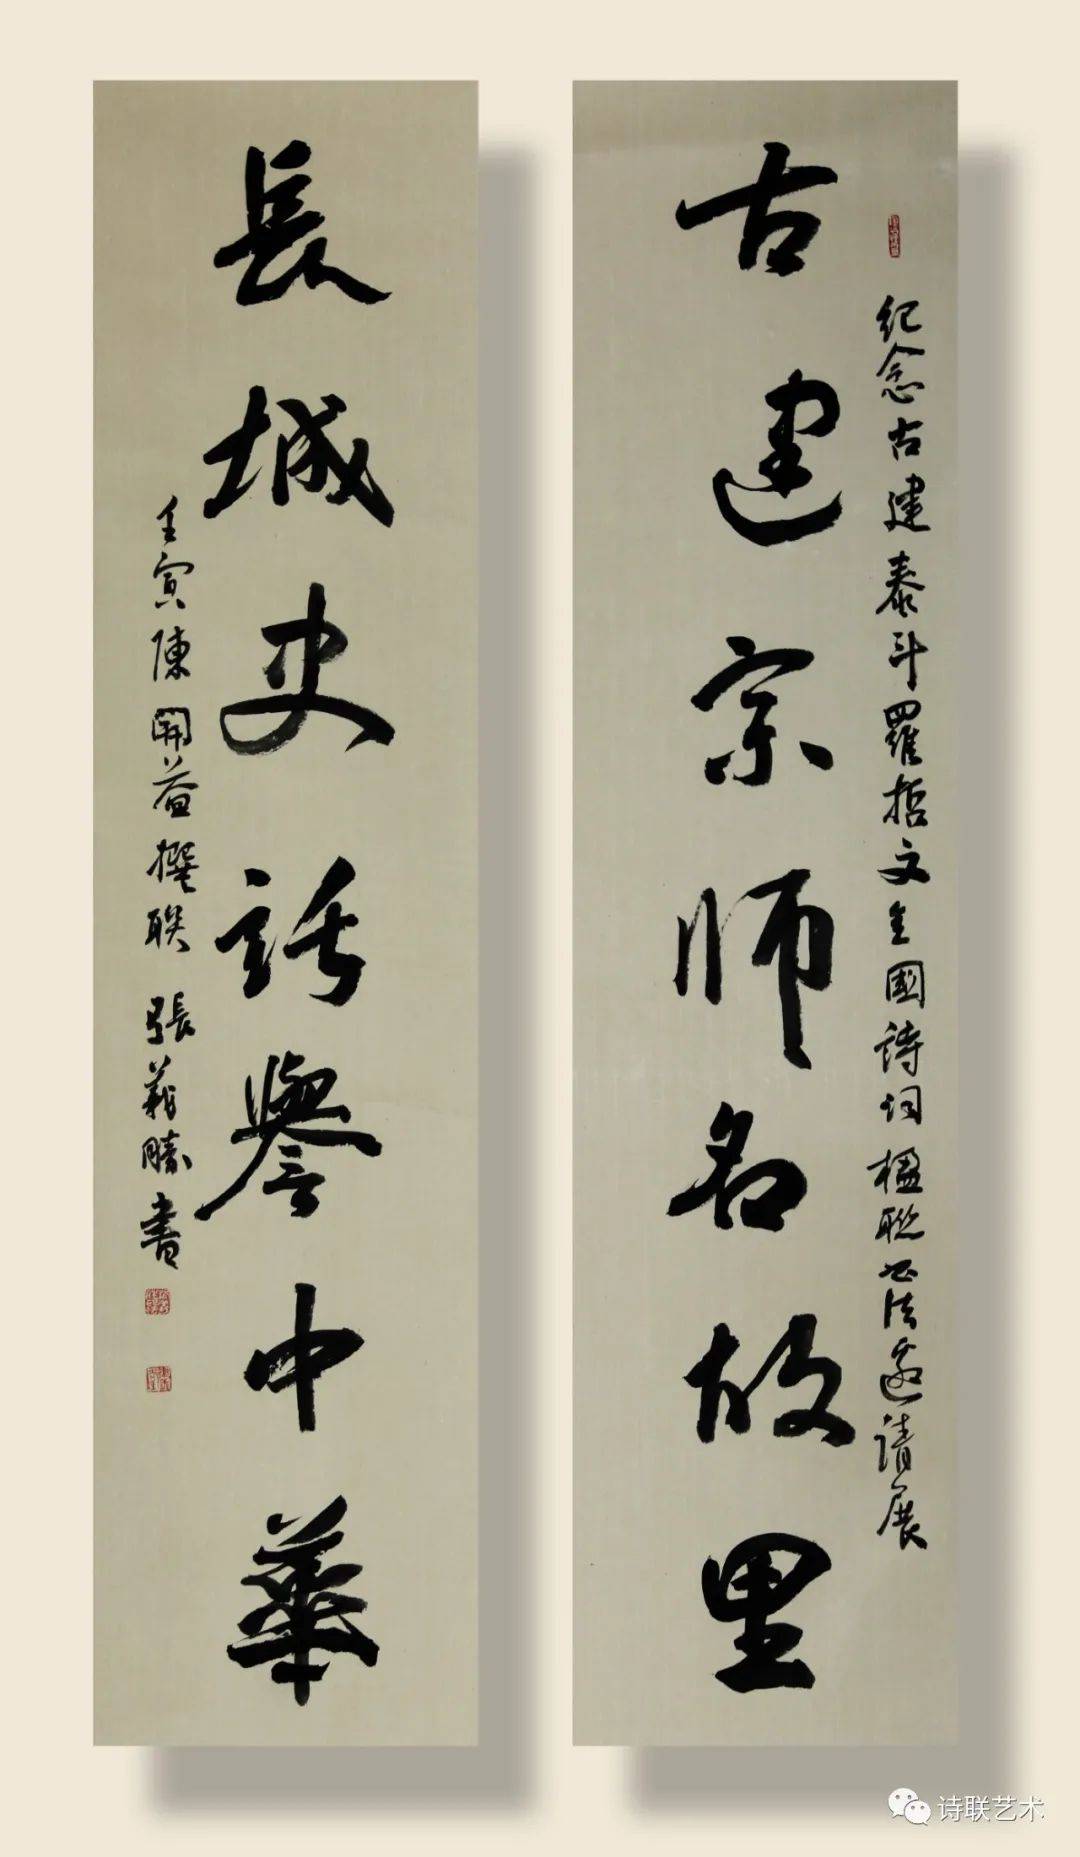 古建宗师名故里
纪念古建泰斗羅哲文全國詩词楹聯书法邀请展
長城史話譽中華
壬寅陳開益撰联 張義勝書
诗联艺术